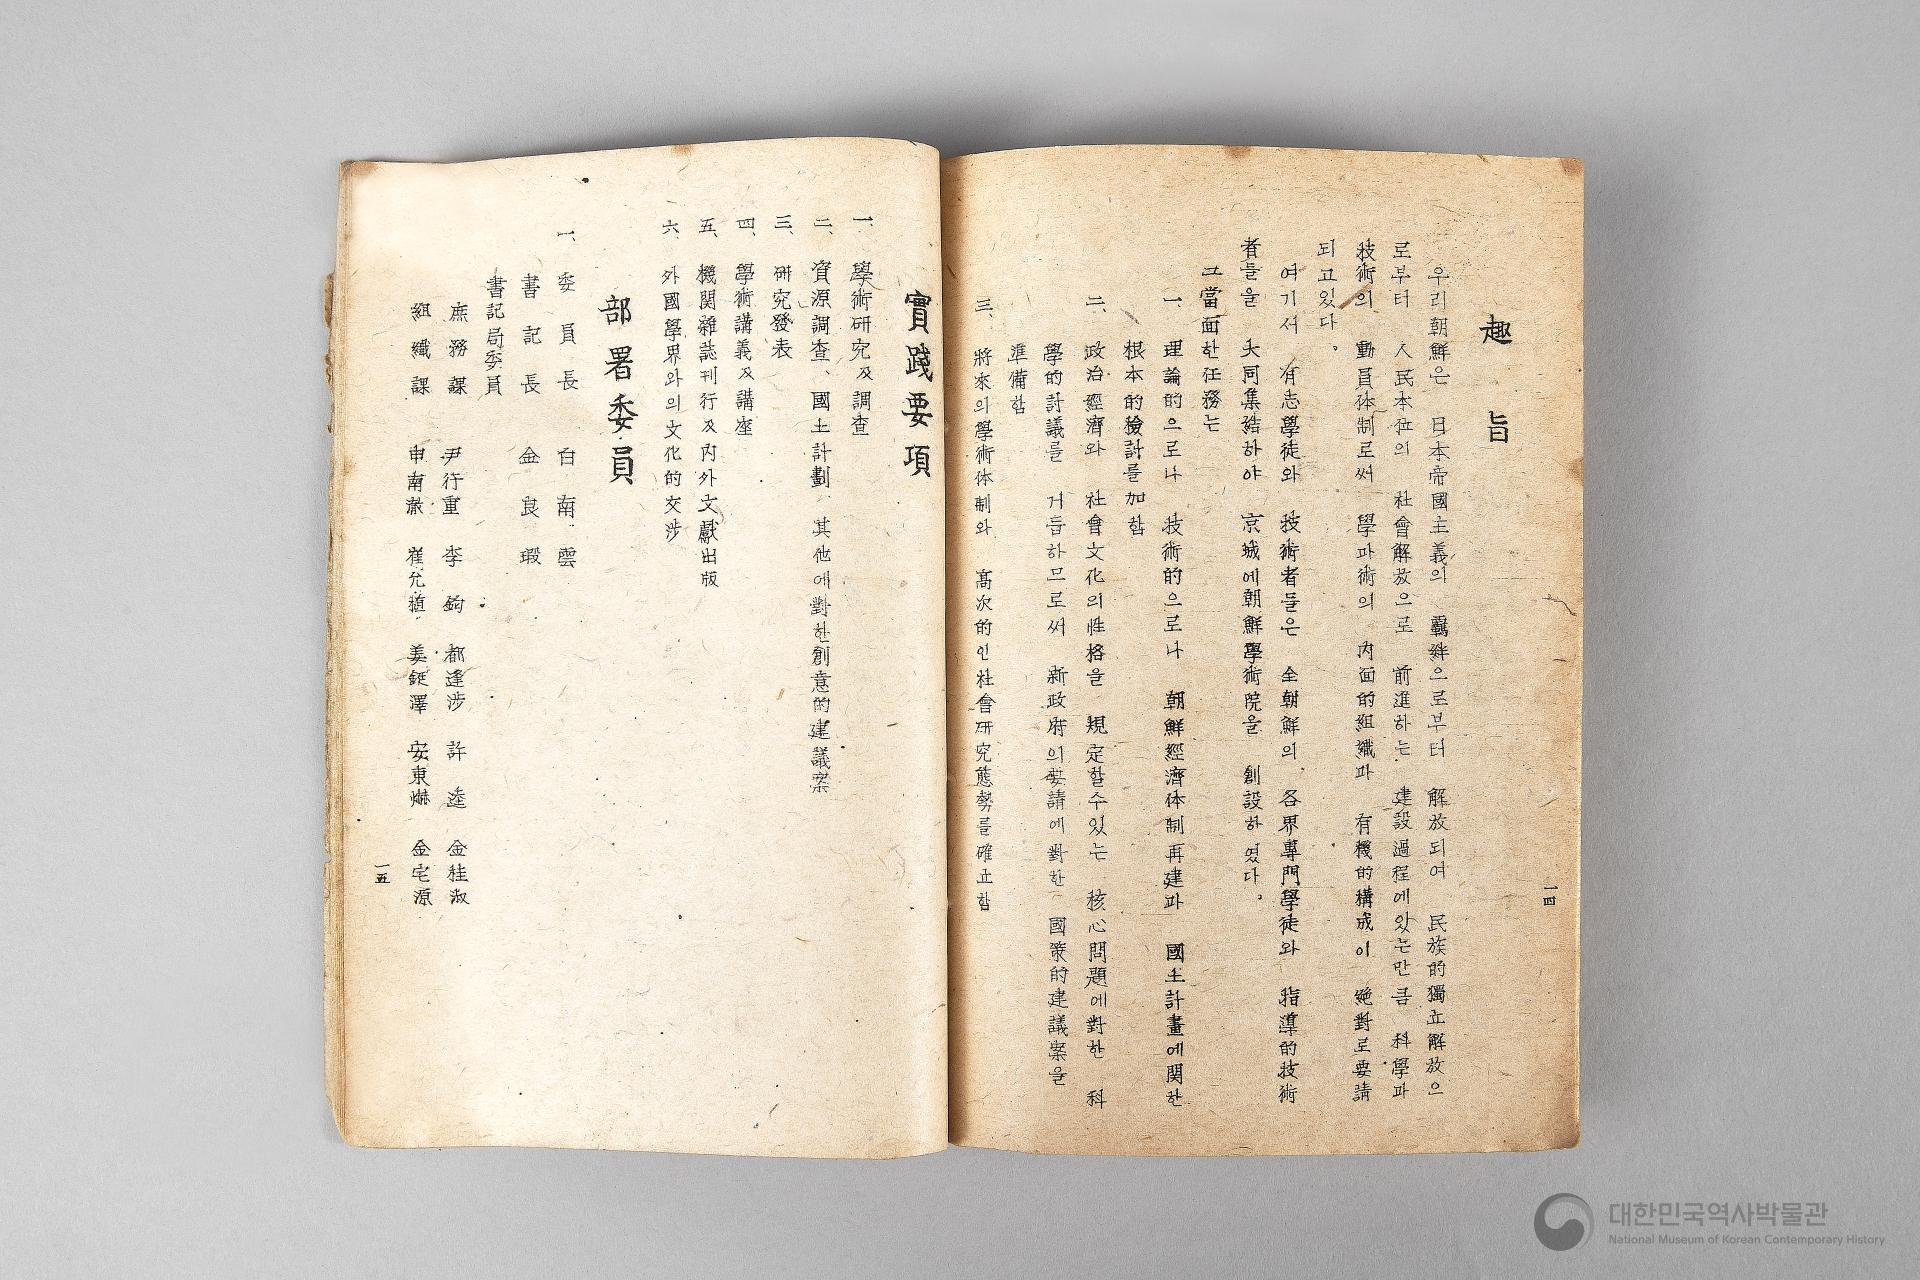 趣旨
우리朝鮮은 日本帝國主義의 羈絆으로부터 解放되여 民族的獨立解放으
로부터 人民本位의 社會解放으로 前進하는 建設過程에있는만큼 科學과
技術의 動員体制로써 學과術의 內面的組織과 有機的構成이 絶對로要請
되고있다。
여기서 有志學徒와 技術者들은 全朝鮮의 各界專門學徒와 指導的技術
者들을 大同集結하야 京城에朝鮮學術院을 創設하였다。
그當面한任務는
一、理論的으로나 技術的으로나 朝鮮經濟体制再建과 國土計畫에関한
根本的檢討를加함
二、政治經濟와 社會文化의性格을 規定할수있는 核心問題에對한 科
學的討議를 거듭하므로써 新政府의要請에對한 國策的建議案을
準備함
三、將來의學術体制와 高次的인社會研究態勢를確立함
一四
實踐要項
一、學術研究及調査
二、資源調查、國土計劃、其他에對한創意的建議案
三、研究發表
四、學術講義及講座
五、機関雜誌刊行及內外文獻出版
六、外國學界와의文化的交涉
部署委員
一、委員長 白南雲
書記長 金良瑕
書記局委員
庶務課 尹行重 李鈞 都逢涉 許逵 金桂淑
組織課 申南澈 崔允植 姜鋌澤 安東爀 金宅源
一五
대한민국역사박물관
National Museum of Korean Contemporary History